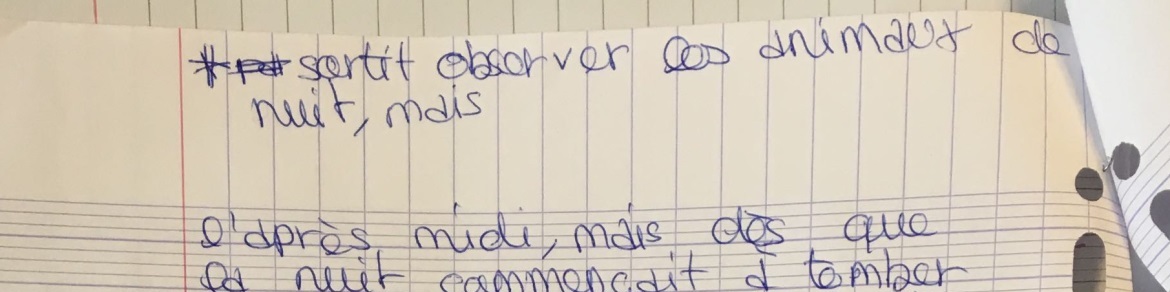 * sortit observer les animaux de
nuit, mais
l'après midi, mais dès que
la nuit commençait à tomber